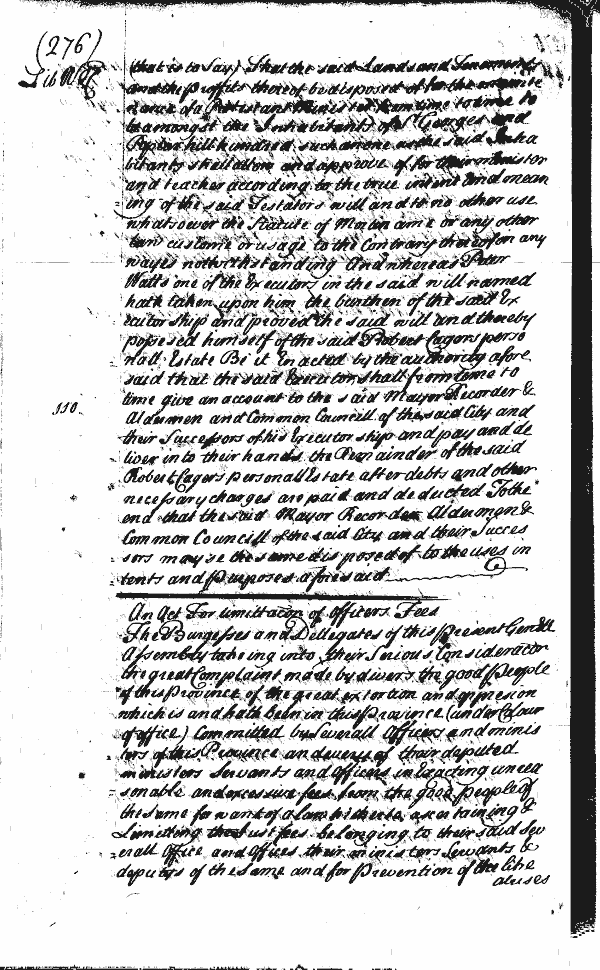 (276)
Lib W H
(that is to Say) That the said Lands and Tenements
and the profitts thereof be disposed of for the mainte
nance of a Protistant Minister from time to time to
be amongst the Inhabitants of St Georges and
Poplar hill hundred such an one as the said Inha
bitants shall allow and approve of for their minister
and teacher according to the true intent and mean
ing of the said Testators will and to no other use
whatsoever the Statute of Mortmaine or any other
law custome or usage to the Contrary thereof on any
wayes notwithstanding And whereas Peter
Watts one of the Executors in the said will named
hath taken upon him the burthen of the said Ex
ecutorship and proved the said will and thereby
possessed himself of the said Robert Cagers perso
nall Estate Be it Enacted by the authority afore
said that the said Executor shall from time to
time give an account to the said Mayor Recorder &
110.
Aldermen and Common Councill of the said City and
their Successors of his Executorship and pay and de
liver into their hands the Remainder of the said
Robert Cagers personall Estate after debts and other
necessary charges are paid and deducted To the
end that the said Mayor Recorder Aldermen &
Common Councill of the said City and their Succes
sors may se the same disposed of to the uses in
tents and purposes aforesaid
An Act For limittacon of officers Fees
The Burgesses and Dellegates of this present Genll
Assembly takeing into their Serious Consideracon
the great Complaint made by divers the good People
of this Province of the great extortion and oppression
which is and hath been in this Province (under Colour
of office) Committed by Severall Officers and minis
ters of this Province and every of their deputed
ministers Servants and officers in Exacting unrea
sonable and excessive fees from the good people of
the same for want of a law hitherto ascertaining &
Limitting the Just fees belonging to their said Sev
erall Office and Offices their ministers Servants &
deputys of the same and for Prevention of the like
abuses